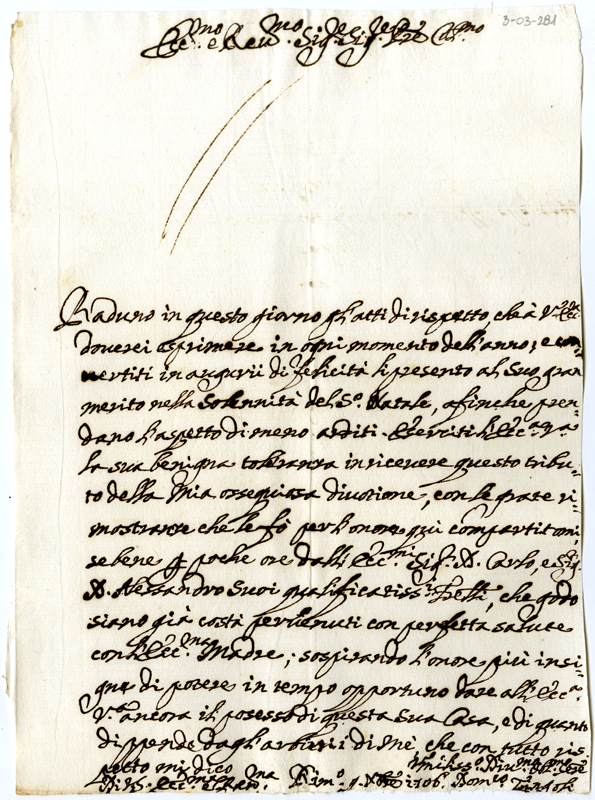 3-03-281
Ecc.mo e Reu.mo Sig.re Sig.re Pre Col.mo
Raduno in questo giorno gl'atti di rispetto, che à V.ra Ecc.za
douerei esprimere in ogni momento dell'anno; e con=
uertiti in augurii di felicità li presento al suo gran
merito nella Solennità del S.o Natale, afinche pren=
dano l'aspetto di meno arditi. Eserciti l'Ecc.a V.a
la sua benigna toleranza in riceuere questo tribu=
to della Mia ossequiosa diuotione, con le grate ri=
mostranze che le fò per l'onore quì compartitomi
se bene p poche ore dalli Ecc.mi Sig.r D. Carlo, e Sig.r
D. Alessandro Suoi qualificatiss.i F.telli, che godo
siano già costà peruenuti con perfetta salute
con l'Ecc.ma Madre; sospirando l'onore più insi=
gne di potere in tempo opportuno dare all'Ecc.a
V.a ancora il possesso di questa sua Casa, e di quanto
dippende dagl'arbitrii di Mè, che con tutto ris=
petto mi dico
Rim.o 9 Xbre 1706